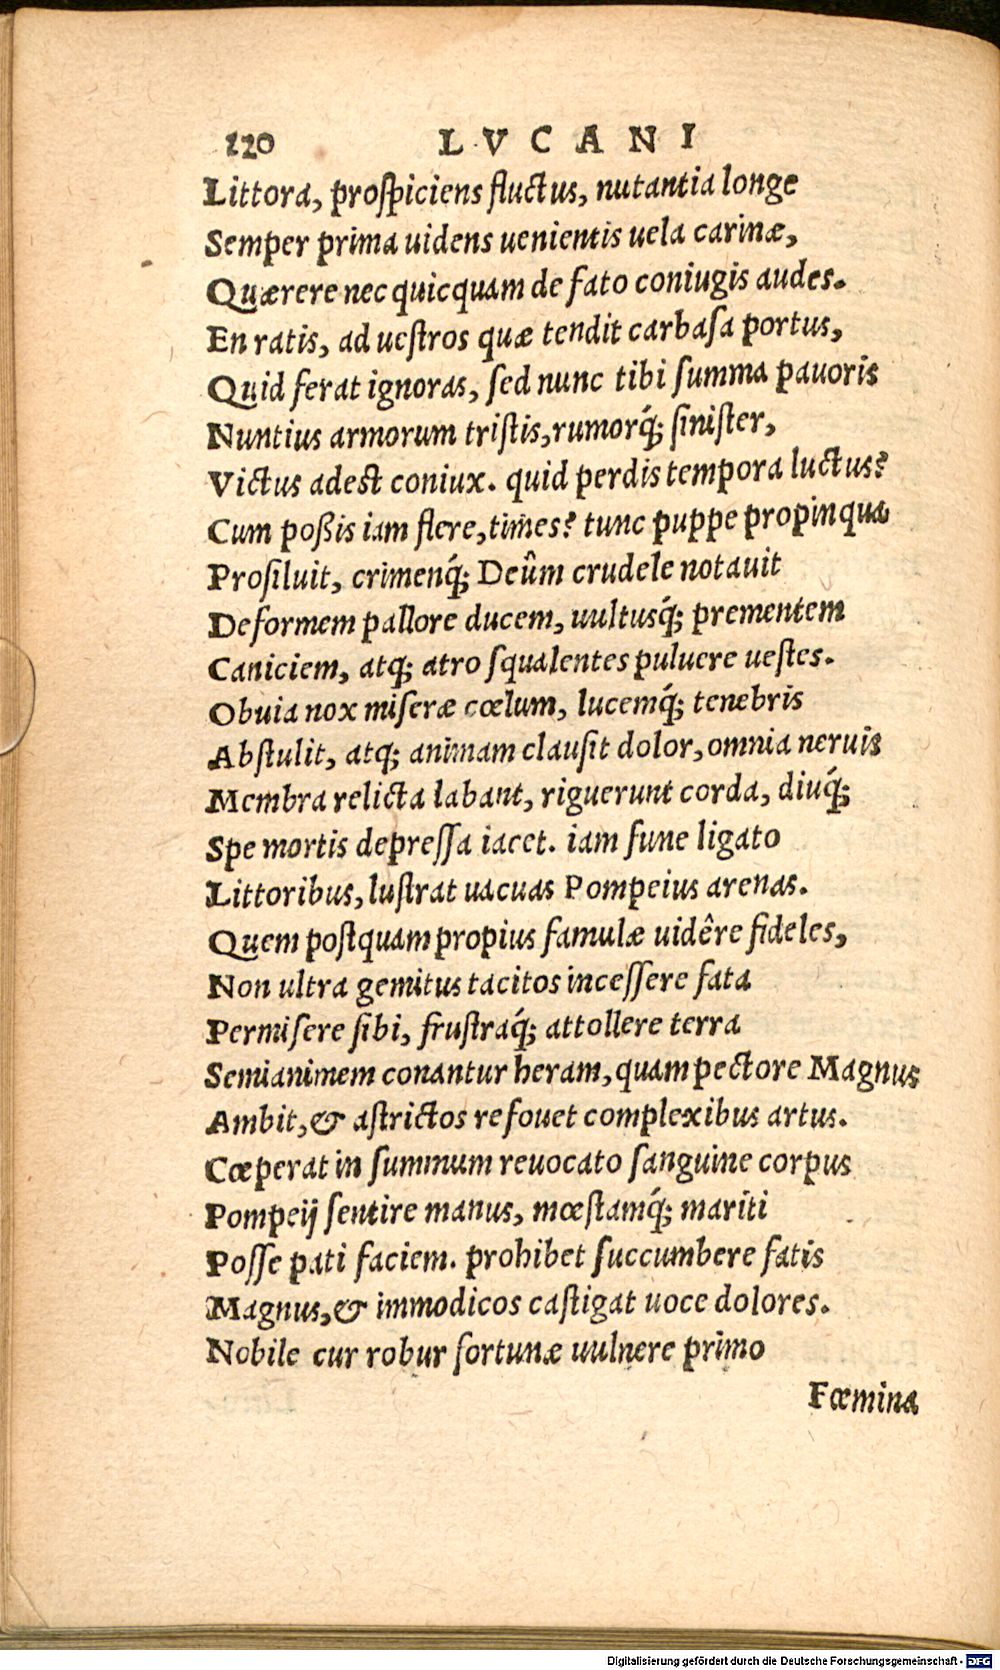 120 LVCANI
Littora, proſpiciens fluctus, nutantia longe
Semper prima uidens uenientis uela carinæ,
Quærere nec quicquam de fato coniugis audes.
En ratis, ad ueſtros quæ tendit carbaſa portus,
Quid ferat ignoras, ſed nunc tibi ſumma pauoris
Nuntius armorum triſtis, rumorq́; ſiniſter,
Victus adest coniux. quid perdis tempora luctus?
Cum poßis iam flere, times? tunc puppe propinqua
Proſiluit, crimenq́; Deûm crudele notauit
Deformem pallore ducem, uultusq́; prementem
Caniciem, atq; atro ſqualentes puluere ueſtes.
Obuia nox miſeræ cœlum, lucemq́; tenebris
Abſtulit, atq; animam clauſit dolor, omnia neruis
Membra relicta labant, riguerunt corda, diuq́;
Spe mortis depreſſa iacet. iam fune ligato
Littoribus, luſtrat uacuas Pompeius arenas.
Quem poſtquam propius famulæ uidêre fideles,
Non ultra gemitus tacitos inceſſere fata
Permiſere ſibi, fruſtraq́; attollere terra
Semianimem conantur heram, quam pectore Magnus
Ambit, & aſtrictos refouet complexibus artus.
Cœperat in ſummum reuocato ſanguine corpus
Pompeij ſentire manus, mœſtamq́; mariti
Poſſe pati faciem. prohibet ſuccumbere fatis
Magnus, & immodicos caſtigat uoce dolores.
Nobile cur robur fortunæ uulnere primo
Fœmina
Digitalisierung gefördert durch die Deutsche Forschungsgemeinschaft - DFG